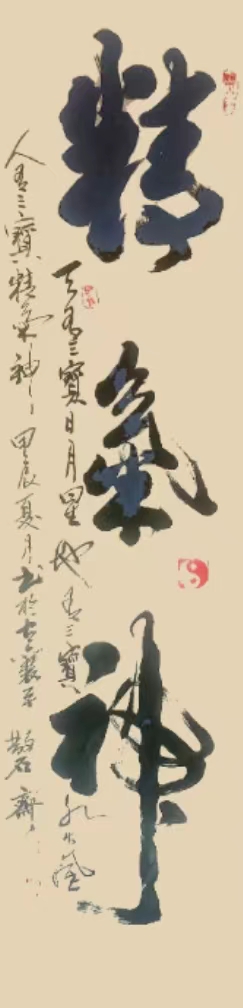 精氣神
天有三寶日月星地有三寶水火風
人有三寶精氣神甲辰夏月書於古襄平磐石齋